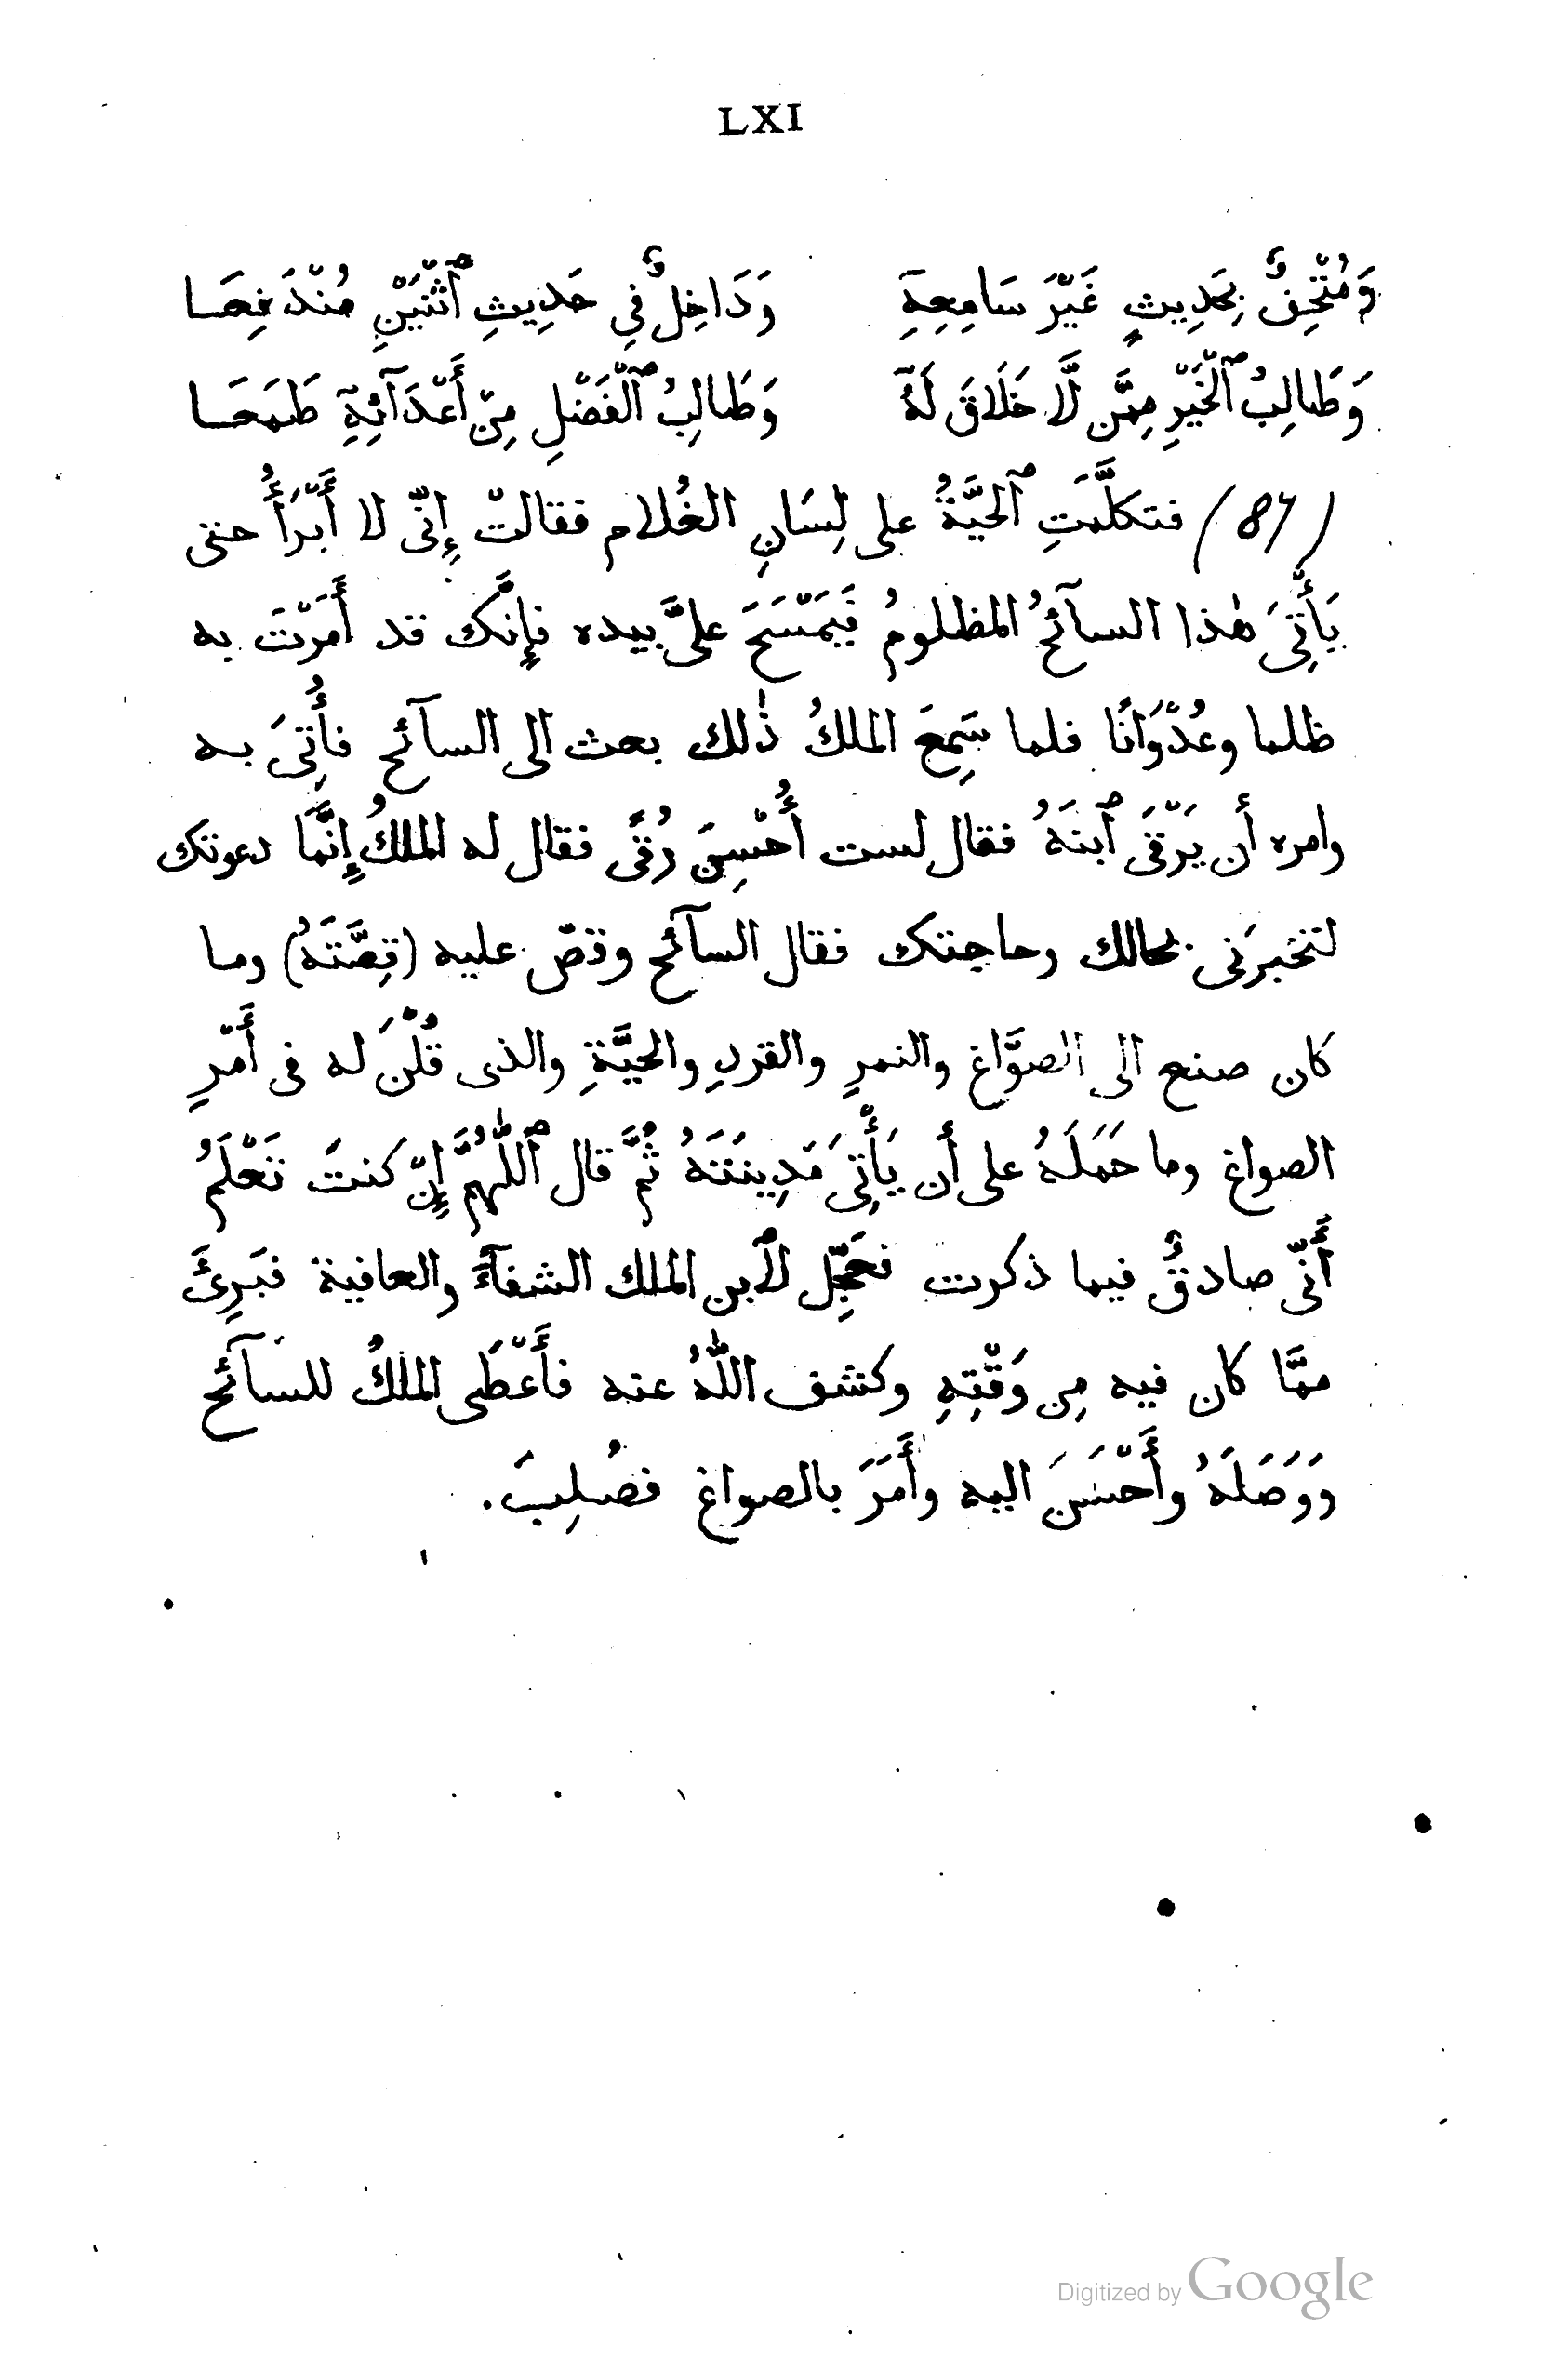 LXI
وَمُتْحِفٌ بِحَدِيثٍ غَيْرَ سَامِعِهِ وَدَاخِلٌ فِي حَدِيثِ ٱثْنَيْنِ مُنْدَفِعَا
وَطَالِبُ ٱلْخَيْرِ مِمَّن لَّا خَلَاقَ لَهُ وَطَالِبُ ٱلْفَضْلِ مِنْ أَعْدَآئِهِ طَمَعَا
(87) فتكلَّمَتِ ٱلحَيَّةُ على لِسَانِ الغُلام فقالتْ إِنّى لا أَبْرَأُ حتى
يَأْتِىَ هٰذا السآئحُ المظلومُ فَيَمْسَحَ علىَّ بيده فإِنَّك قد أَمَرْتَ به
ظلما وعُدْوَانًا فلما سَمِعَ الملكُ ذٰلك بعث الى السآئح فأُتِىَ به
وامره أن يَرْقَى ٱبنَهُ فقال لست أُحْسِنَ رُقًى فقال له الملكُ إِنَّمَا دعوتك
لتخبرَنى بحالك وحاجتك فقال السآئح وقصّ عليه (قِصَّتَهُ) وما
كان صنع الى الصوَّاغ والنمرِ والقردِ والحيَّةِ والذى قُلْنَ له فى أَمْرِ
الصواغ وما حَمَلَهُ على أن يَأْتِىَ مَدِينَتَهُ ثُمَّ قال ٱللّٰهُمَّ إِنْ كنتَ تَعْلَمُ
أَنّى صادقٌ فيما ذكرت فعَجِّل لٱبن الملك الشفآءَ والعافية فبَرِئَ
ممَّا كان فيه مِن وَقْتِهِ وكشف اللّٰهُ عنه فأَعْطَى الملكُ للسآئح
وَوَصَلَهُ وأَحْسَنَ اليه وأَمَرَ بالصواغ فصُلِبَ.
Digitized by Google